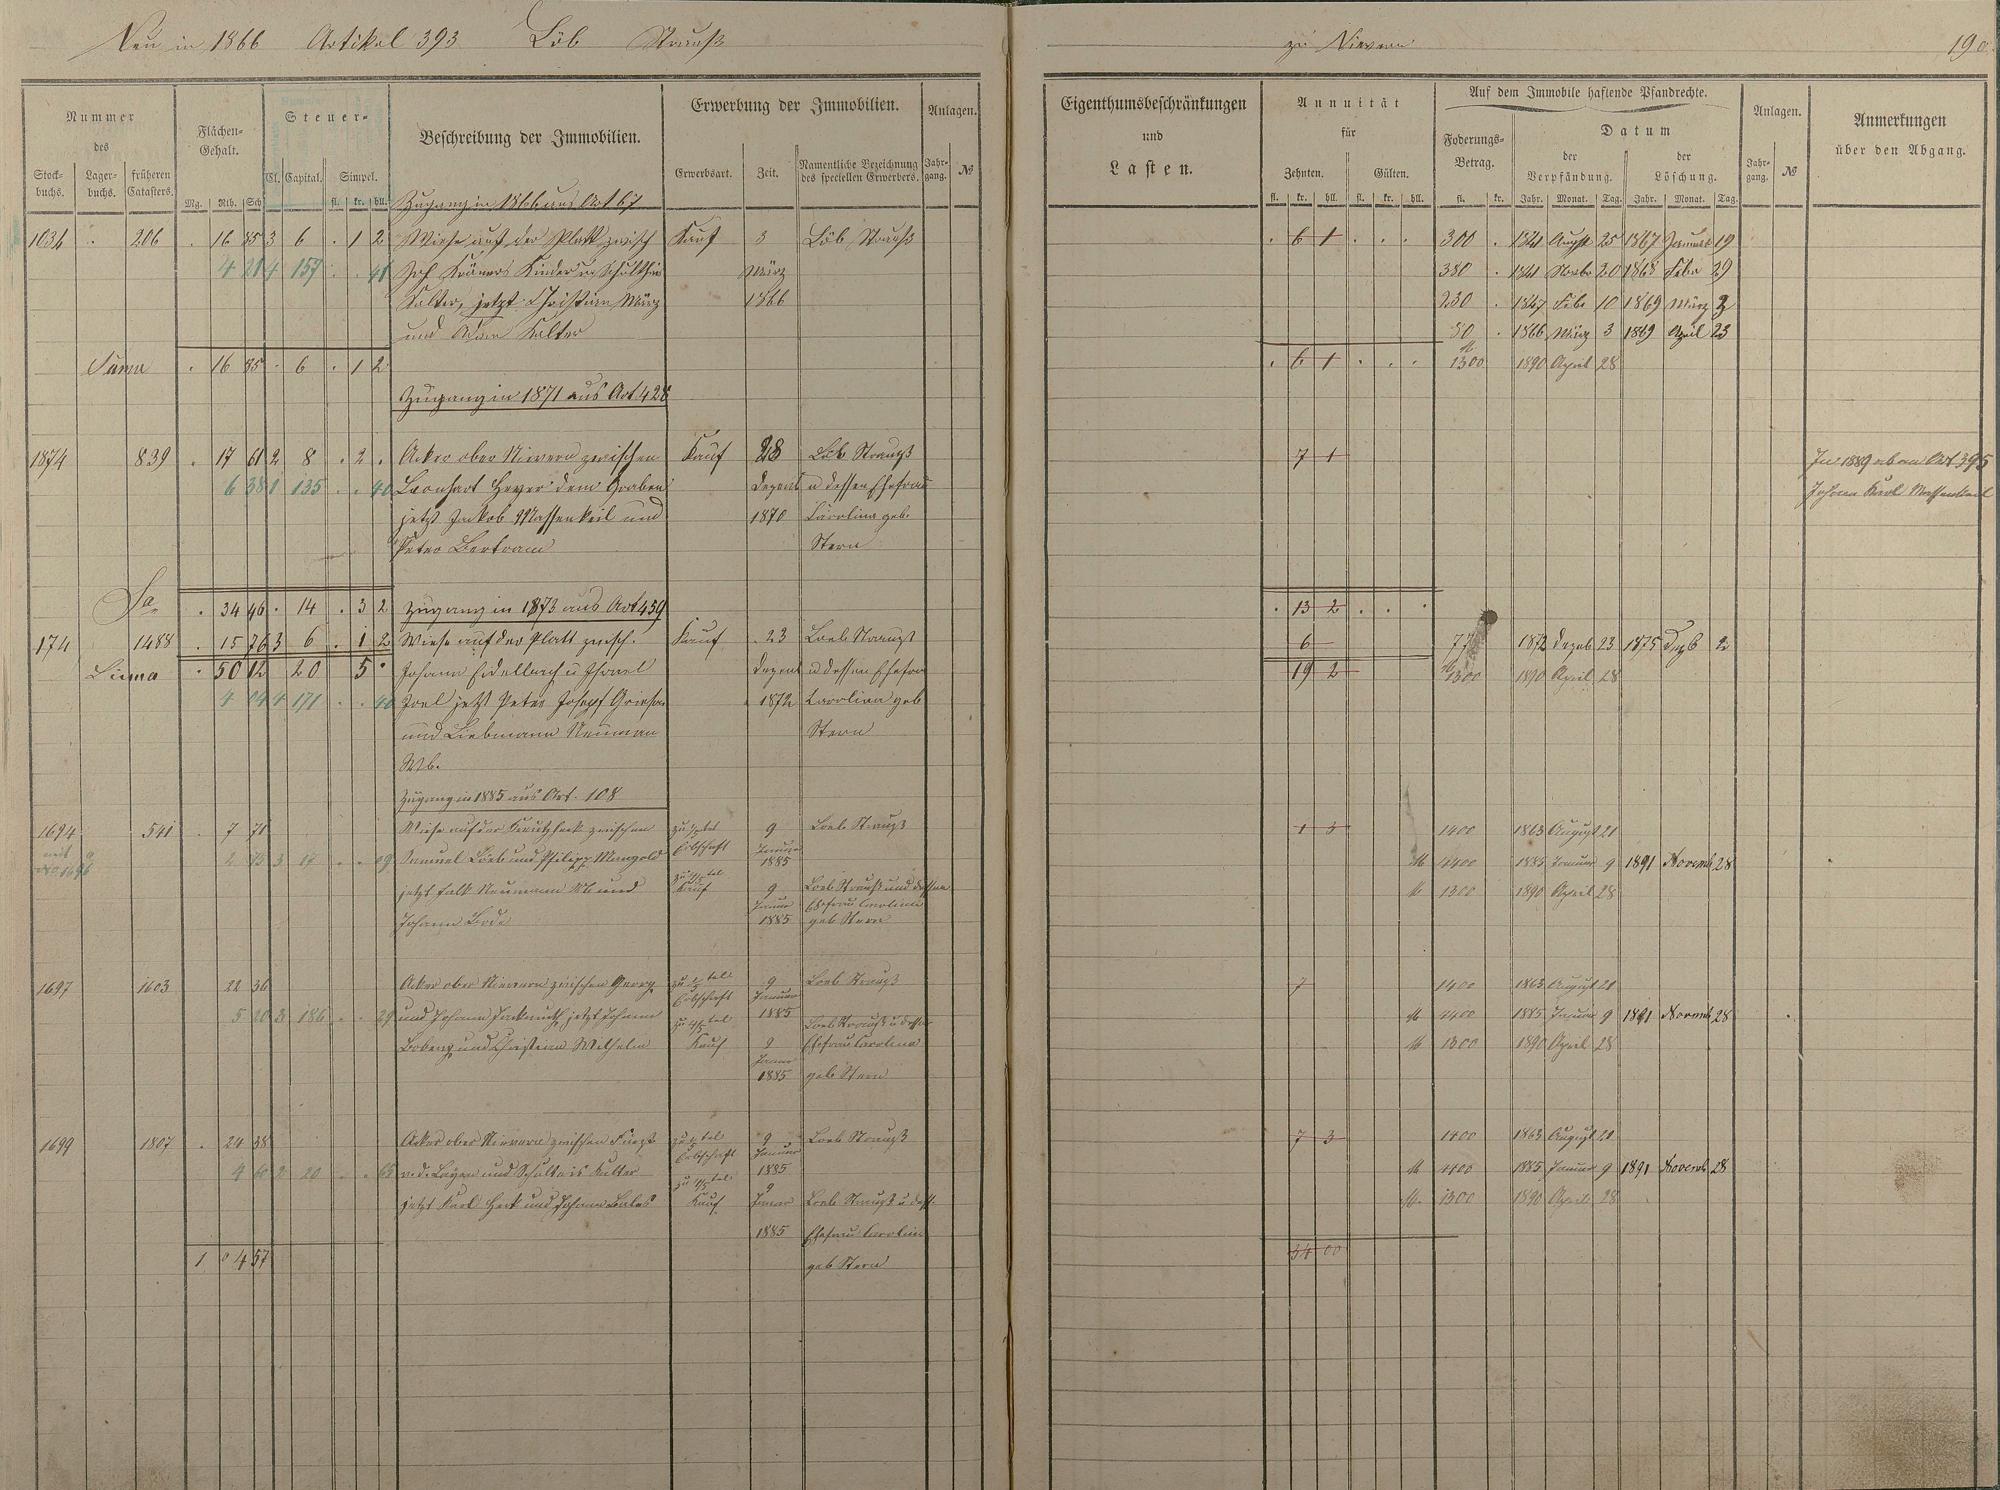 Neu in 1866 Artikel 393 Löb Strauß
zu Nievern 190
Nummer des
Stock-buchs. Lager-buchs. früheren Catasters.
Flächen-Gehalt.
Mg. Rth. Sch
Steuer-
Cl. Capital. Simpel.
fl. kr. hll.
Beschreibung der Immobilien.
Erwerbung der Immobilien.
Erwerbsart. Zeit. Namentliche Bezeichnung des speciellen Erwerbers.
Anlagen.
Jahr-gang. №
Eigenthumsbeschränkungen
und
Lasten.
Annuität
für
Zehnten. Gülten.
fl. kr. hll. fl. kr. hll.
Auf dem Immobile haftende Pfandrechte.
Foderungs-Betrag.
fl. kr.
Datum
der Verpfändung. der Löschung.
Jahr. Monat. Tag. Jahr. Monat. Tag.
Anlagen.
Jahr-gang. №
Anmerkungen
über den Abgang.
Zugang in 1866 aus Art 67
1034 206 16 85 3 6 1 2 Wiese auf der Platt zwisch Kauf 3 Löb Strauß 6 1 300 1841 August 25 1867 Januar 19
4 21 4 157 41 Joh Krämers Kinder u Schultheis März 380 1841 Novbr 20 1868 Febr 29
Kalter, jetzt Christian März 1866 230 1847 Febr 10 1869 März 3
und Adam Kalter 50 1866 März 3 1869 April 23
Suma 16 85 6 1 2 6 1 M 1300 1890 April 28
Zugang in 1871 aus Art 428
1874 839 17 61 2 8 2 Acker ober Nievern zwischen Kauf 28 Löb Strauß 7 1 In 1889 ab an Art 395
6 38 1 135 40 Leonhart Heyer dem Graben Dezemb u dessen Ehefrau Johann Karl Massenkeil
jetzt Jakob Massenkeil und 1870 Carolina geb.
Peter Bertram Stern
Sa. 34 46 14 3 2 Zugang in 1873 aus Art 459 13 2
174 1488 15 76 3 6 1 2 Wiese auf der Platt zwisch. Kauf 23 Loeb Strauß 6 77 1872 Dezeb 23 1875 Dezb 2
Suma 50 12 20 5 Johann u Israel Dezemb u dessen Ehefrau 19 2 M 1300 1890 April 28
4 04 4 171 40 Joel jetzt Peter Josepf 1872 Carolina geb
und Liebmann Neuman Stern
Wb.
Zugang in 1885 aus Art. 108
1694 541 7 71 Wiese auf der zwischen Loeb Strauß 1 3 1400 1863 August 21
mit 1696 2 75 3 17 09 Samuel Loeb und Philipp Mangold Erbschaft 9 Januar 1885 M 4400 1885 Januar 9 1891 Novemb 28
jetzt Falk Neumann Wb und Kauf 9 Loeb Strauß und dessen M 1300 1890 April 28
Johann Bode Januar 1885 Ehefrau Carolina geb Stern
1697 1603 22 36 Acker ober Nievern zwischen Georg Loeb Strauß 7 1400 1863 August 21
5 20 3 186 29 und Johann jetzt Johann Erbschaft 9 Januar 1885 M 4400 1885 Januar 9 1891 Novemb 28
und Christian Wilhelm Kauf 9 Januar 1885 Loeb Strauß u dessen Ehefrau Carolina geb Stern M 1300 1890 April 28
1699 1807 24 38 Acker ober Nievern zwischen Fürst Loeb Strauß 7 3 1400 1863 August 21
2 20 65 v. d. Leyen und Schultheis Kalter Erbschaft 9 Januar 1885 M 4400 1885 Januar 9 1891 Novemb 28
jetzt Karl und Johann Kauf 9 Januar Loeb Strauß u dess. M. 1300 1890 April 28
1885 Ehefrau Carolina
1 0 4 57 geb Stern 34 00